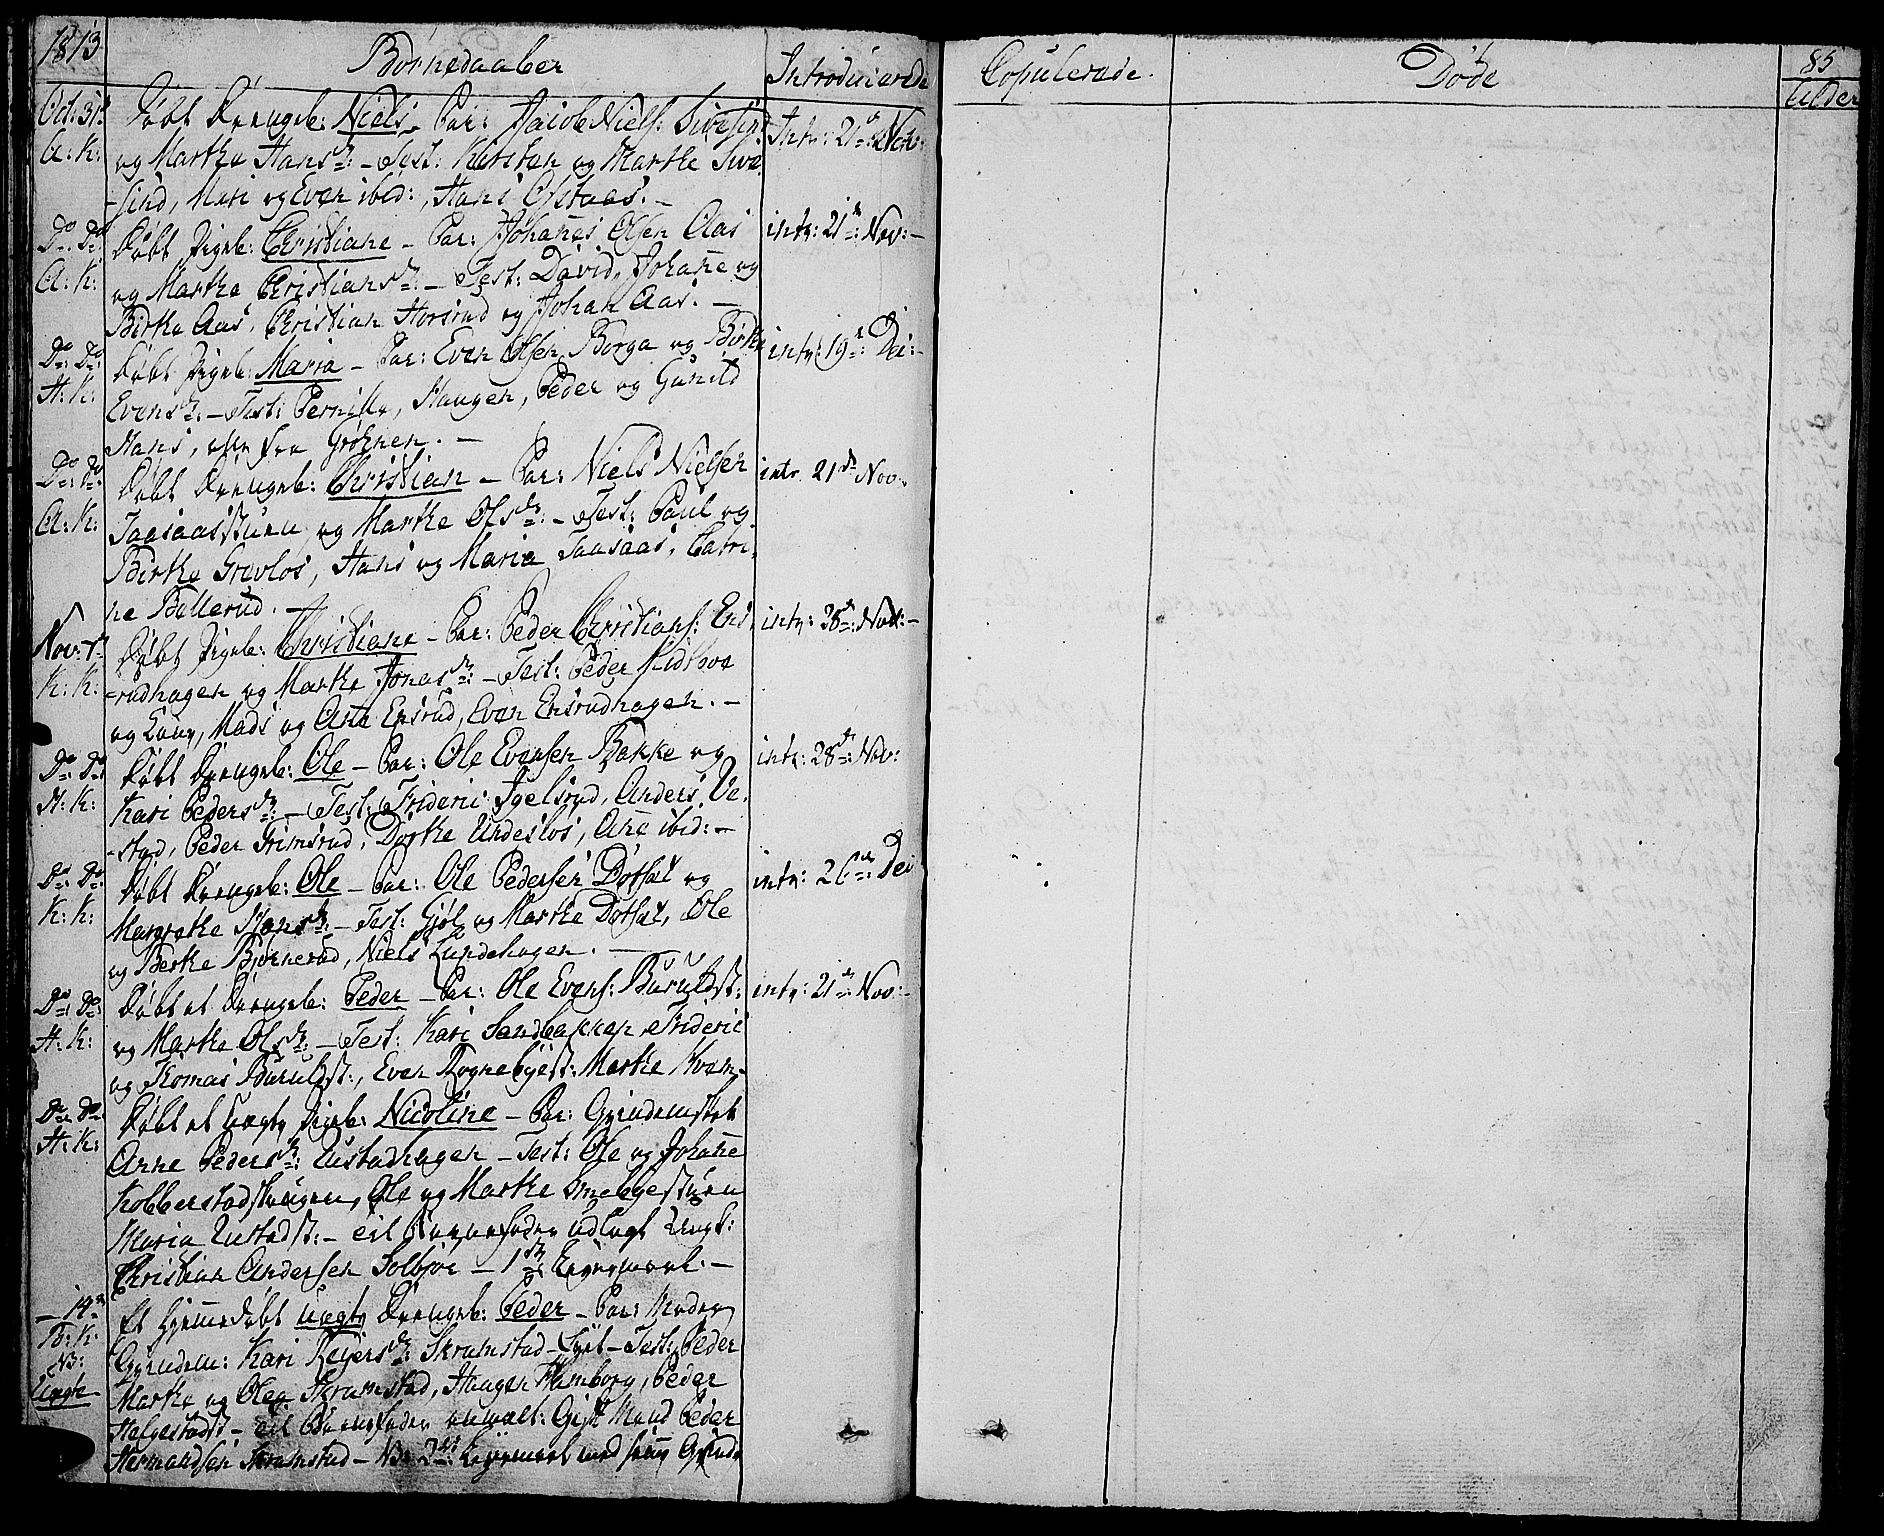 1813
Børnedaaber
Introducerede
Copulerede.
Døde
85
alder
Oct: 31te
A: K:
Døbt Drengeb: Niels. Par: Jacob Niels: Sivesin
og Marthe Hansdr: - Test: Kirsten og Marthe Sive
-sind, Mari og Even ibid:, Hans Ofstaas. -
Intr: 21de Nov:
Do Do
A: K:
Døbt Pigeb: Christiane - Par: Johanes Olsen Aas
og Marthe Christiansdr: - Test: David, Johane og
Birthe Aas, Christian Horsrud og Johan Aas. -
intr: 21de Nov: -
Do: Do:
H: K:
Døbt Pigeb: Maria - Par: Even Olsen Borga og Birthe
Evensdr: - Test: Pernille, Haugen, Peder og Gunild
Hans, alle fra Grøhnen. -
intr: 19de Dec: -
Do: Do:
A: K:
Døbt Drengeb: Christian - Par: Niels Nielsen
Taasaasstuen og Marthe Olsdr: - Test: Paul og
Birthe Grevløs, Hans og Maria Taasaas, Catri-
ne Bøllerud. -
intr. 21de Nov:
Nov: 7de
K: K:
Døbt Pigeb: Christiane - Par: Peder Christians: Ens
-rudhagen og Marthe Jonasdr: - Test: Peder Midthove
og Kone, Mads og Ane Ensrud, Even Ensrudhagen. -
intr: 28de Nov: -
Do: Do:
H: K:
Døbt Drengeb: Ole - Par: Ole Evensen Bakke og
Kari Pedersdr: - Test: Frideric Igelsrud, Anders Ve-
-stad, Peder Grimsrud, Dorthe Undesløs, Ane ibid: -
intr: 28de Nov:
Do: Do:
K: K:
Døbt Drengeb: Ole - Par: Ole Pedersen Dotset og
Margrethe Hansdr: - Test: Gjøl og Marthe Dotset, Ole
og Berthe Bjørnerud, Niels Lundehagen. -
intr: 26de Dec
Do: Do:
H: K:
Døbt et Drengeb: Peder - Par: Ole Evens: Buruldst:
og Marthe Olsdr: - Test: Kari Sandbakken, Frideric
og Thomas Burulst:, Even Rognebyest: Marthe Kvem-
intr: 21de Nov: -
Do: Do:
H: K:
Døbt et uægte Pigeb: Nicoline - Par: Qvindemsket
Anne Pedersdr: Tustadhagen - Test: Ole og Johane
Kobberstadshaugen, Ole og Marthe Smebyestuen
Maria Tustadst: - til Barnefader udlagt Ungk:
Christian Andersen Solbjør - 1ste Leyermaal. -
- 14de
B: K:
NB:
Uægte
Et hjemmedøbt uægte Drengeb: Peder - Par: Moder
Qvindem: Kari Reiersdr: Skramstad-Eyet - Test: Peder
Marthe og Olea Skramstad, Haagen Hamborg, Peder
Helgestadst - til Barnefader anmelt: Gift Mand Peder
Hermandsen Skramstad - NB 2det Leyermaal med samme Qvinde